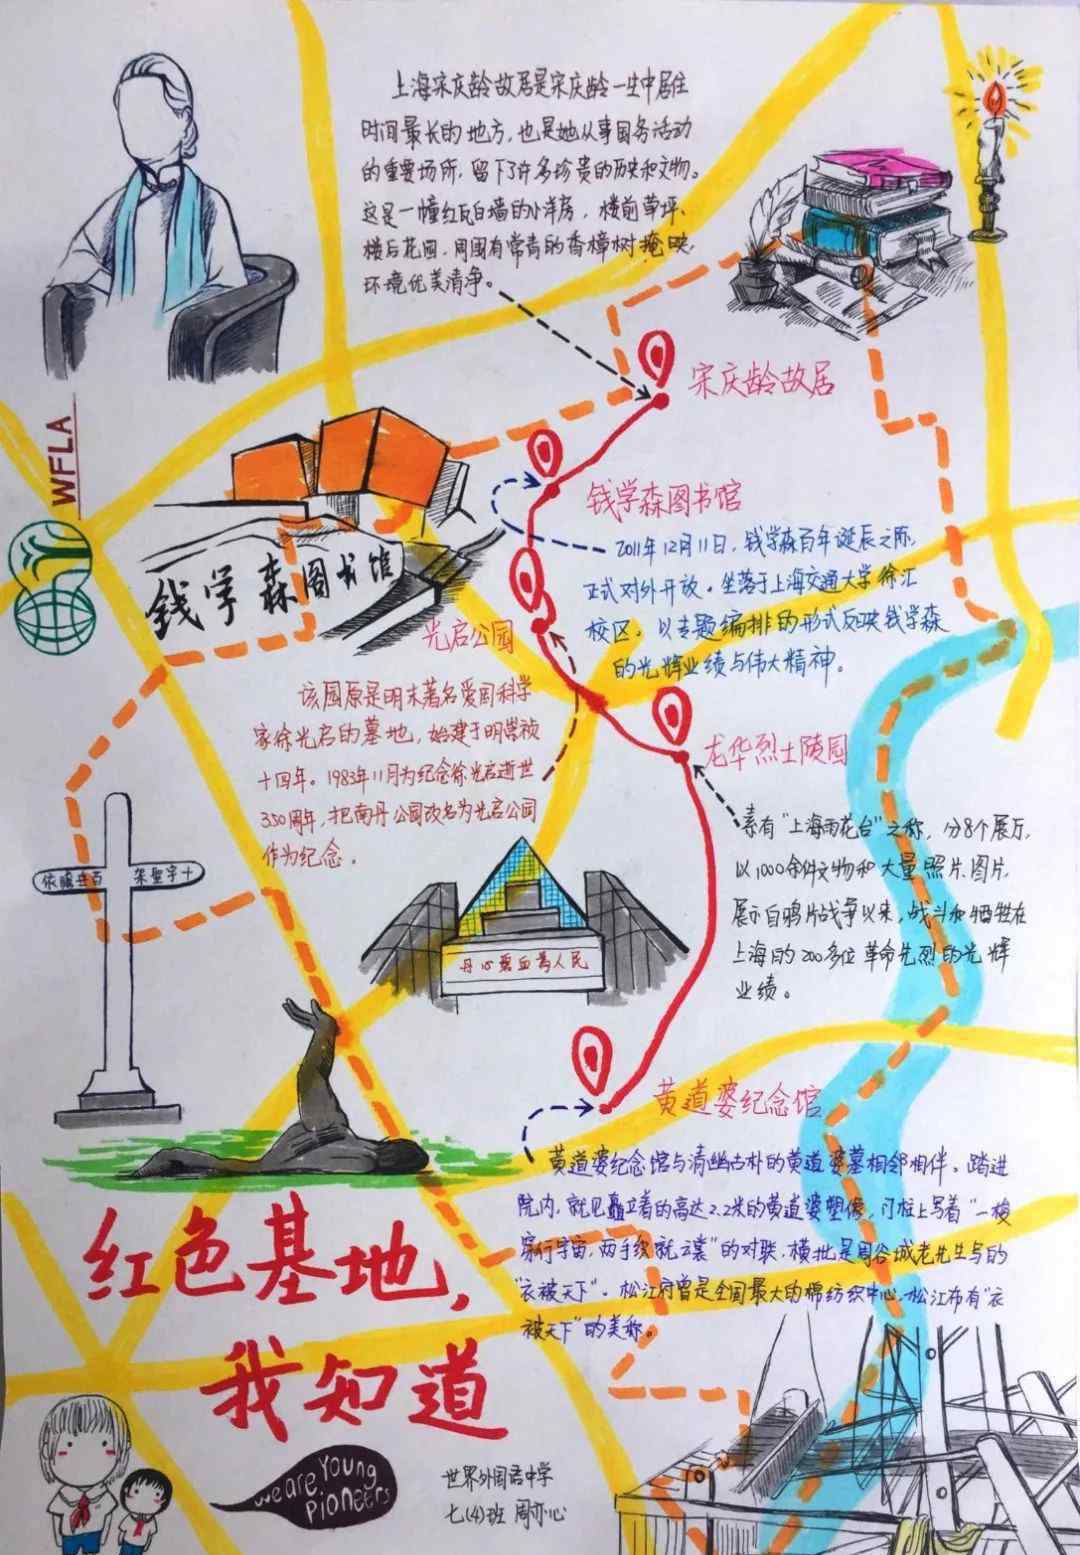 上海宋庆龄故居是宋庆龄一生中居住
时间最长的地方，也是她从事国务活动
的重要场所，留下了许多珍贵的历史和文物。
这是一幢红瓦白墙的小洋房，楼前草坪、
楼后花园，周围有常青的香樟树掩映，
环境优美清净。
宋庆龄故居
WFLA
钱学森图书馆
钱学森图书馆
2011年12月11日，钱学森百年诞辰之际，
正式对外开放。坐落于上海交通大学徐汇
校区，以专题编排的形式反映钱学森
的光辉业绩与伟大精神。
光启公园
该园原是明末著名爱国科学
家徐光启的墓地，始建于明崇祯
十四年。1983年11月为纪念徐光启逝世
350周年，把南丹公园改名为光启公园
作为纪念。
龙华烈士陵园
素有“上海雨花台”之称，分8个展厅，
以1000余件文物和大量照片、图片，
展示自鸦片战争以来，战斗和牺牲在
上海的200多位革命先烈的光辉
业绩。
丹心碧血为人民
十字聖架
黄道婆纪念馆
黄道婆纪念馆与清幽古朴的黄道婆墓相邻相伴。踏进
院内，就见矗立着的高达2.2米的黄道婆塑像，门柱上写着“一梭
穿行宇宙，两手织就云裳”的对联，横批是周谷城老先生写的
“衣被天下”。松江府曾是全国最大的棉纺织中心，松江布有“衣
被天下”的美称。
红色基地，
我知道
we are Young
Pioneers
世界外国语中学
七(4)班 周亦心